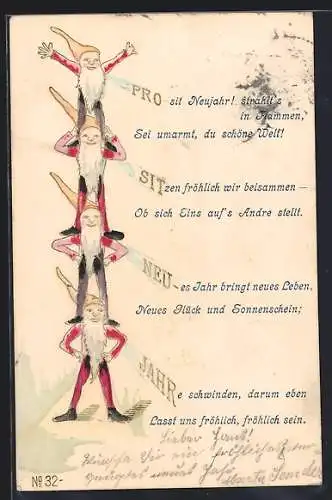 PRO sit Neujahr! strahlt's
in Flammen,
Sei umarmt, du schöne Welt!
SIT zen fröhlich wir beisammen —
Ob sich Eins auf's Andre stellt.
NEU- es Jahr bringt neues Leben,
Neues Glück und Sonnenschein;
JAHR e schwinden, darum eben
Lasst uns fröhlich, fröhlich sein.
Lieber Hans!
Wünsche Dir ein
neues Jahr
No 32-